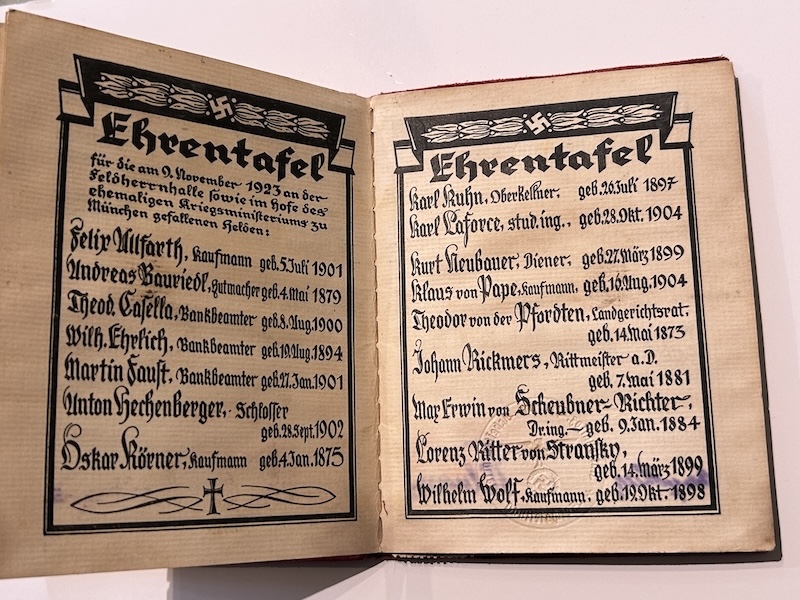 Ehrentafel
für die am 9. November 1923 an der
Feldherrnhalle sowie im Hofe des
ehemaligen Kriegsministeriums zu
München gefallenen Helden:
Felix Allfarth, Kaufmann geb. 5. Juli 1901
Andreas Bauriedl, Hutmacher geb. 4. Mai 1879
Theod. Casella, Bankbeamter geb. 8. Aug. 1900
Wilh. Ehrlich, Bankbeamter geb. 19. Aug. 1894
Martin Faust, Bankbeamter geb. 27. Jan. 1901
Anton Hechenberger, Schlosser
geb. 28. Sept. 1902
Oskar Körner, Kaufmann geb. 4. Jan. 1875
Ehrentafel
Karl Kuhn, Oberkellner, geb. 26. Juli 1897
Karl Laforce, stud. ing., geb. 28. Okt. 1904
Kurt Neubauer, Diener, geb. 27. März 1899
Klaus von Pape, Kaufmann, geb. 16. Aug. 1904
Theodor von der Pfordten, Landgerichtsrat,
geb. 14. Mai 1873
Johann Rickmers, Rittmeister a. D.
geb. 7. Mai 1881
Max Erwin von Scheubner-Richter,
Dr. ing. geb. 9. Jan. 1884
Lorenz Ritter von Stransky,
geb. 14. März 1899
Wilhelm Wolf, Kaufmann, geb. 19. Okt. 1898